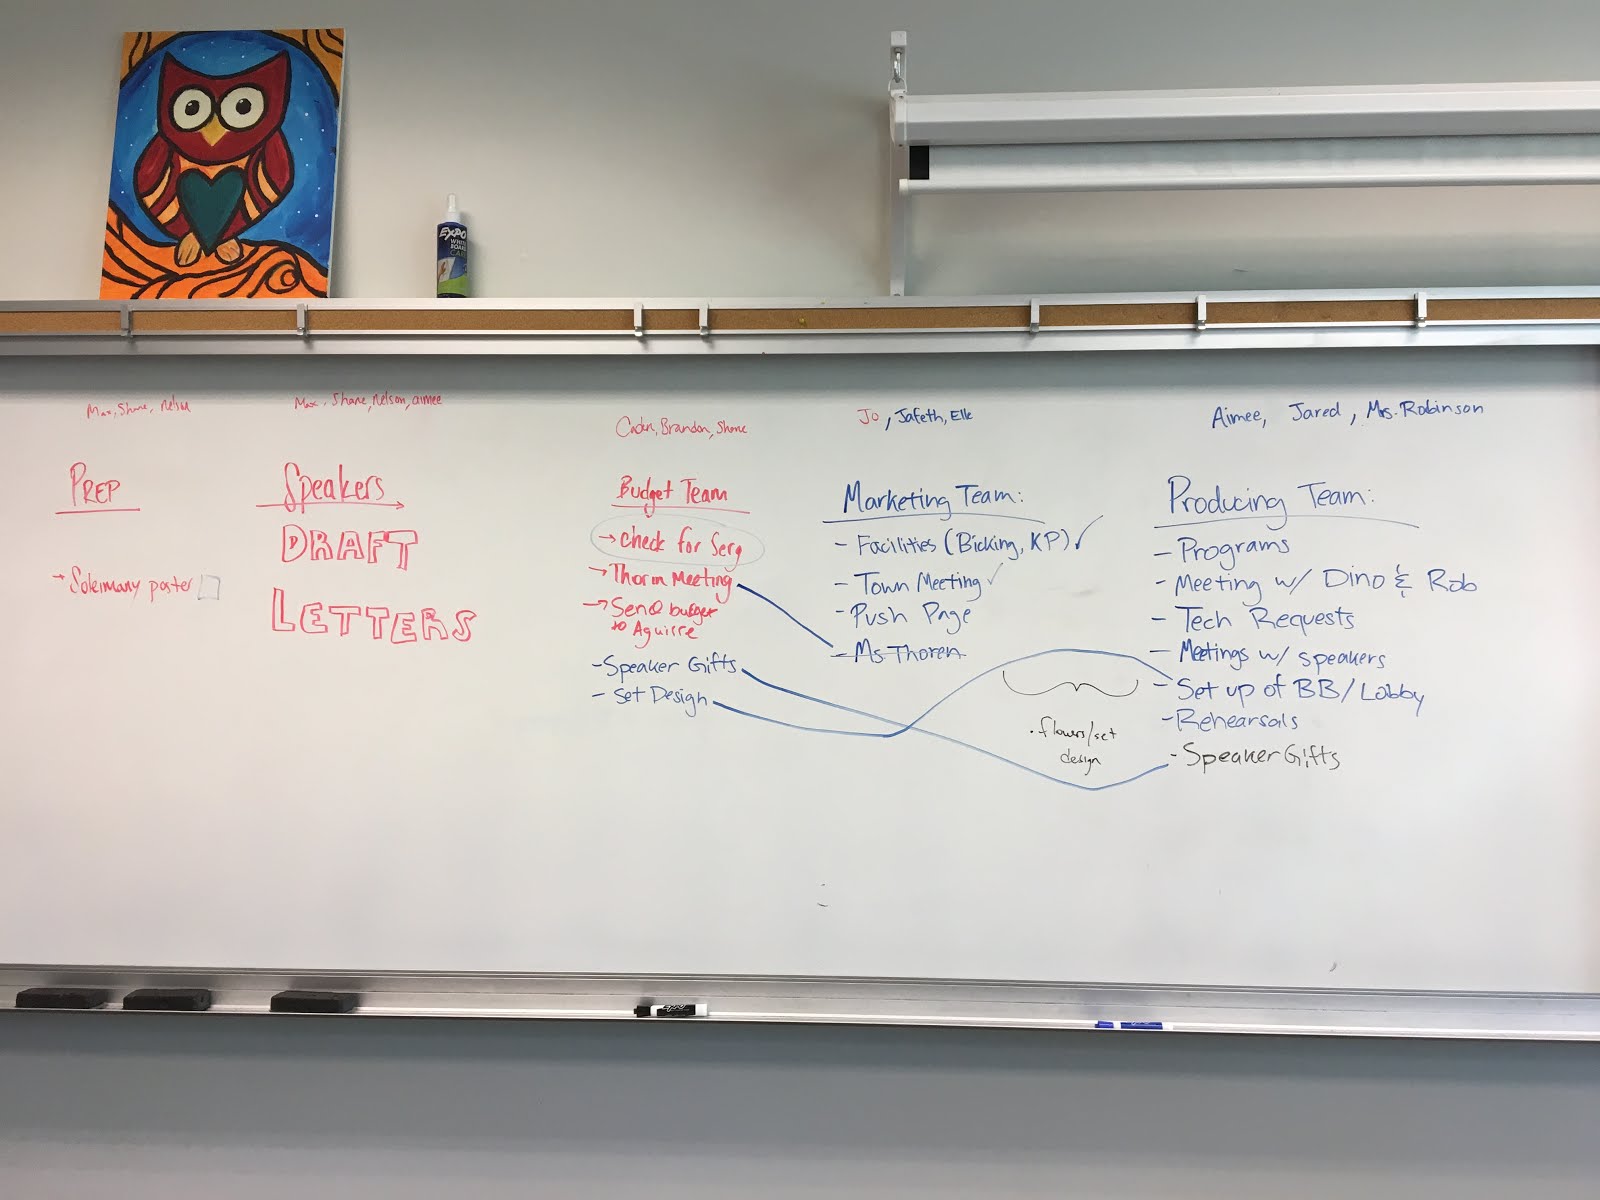 EXPO
WHITE
BOARD
CARE
Max, Shane, Nelson
PREP
→ Soleimany poster
Max, Shane, Nelson, aimee
Speakers
DRAFT
LETTERS
Caden, Brandon, Shane
Budget Team
→ check for Serg
→ Thorin Meeting
→ Send budget
to Aguirre
- Speaker Gifts
- Set Design
Jo, Jafeth, Elle
Marketing Team:
- Facilities (Bicking, KP) ✓
- Town Meeting ✓
- Push Page
- Ms Thoren
· flowers/set
design
Aimee, Jared, Mrs. Robinson
Producing Team:
- Programs
- Meeting w/ Dino & Rob
- Tech Requests
- Meetings w/ speakers
- Set up of BB/Lobby
- Rehearsals
- Speaker Gifts